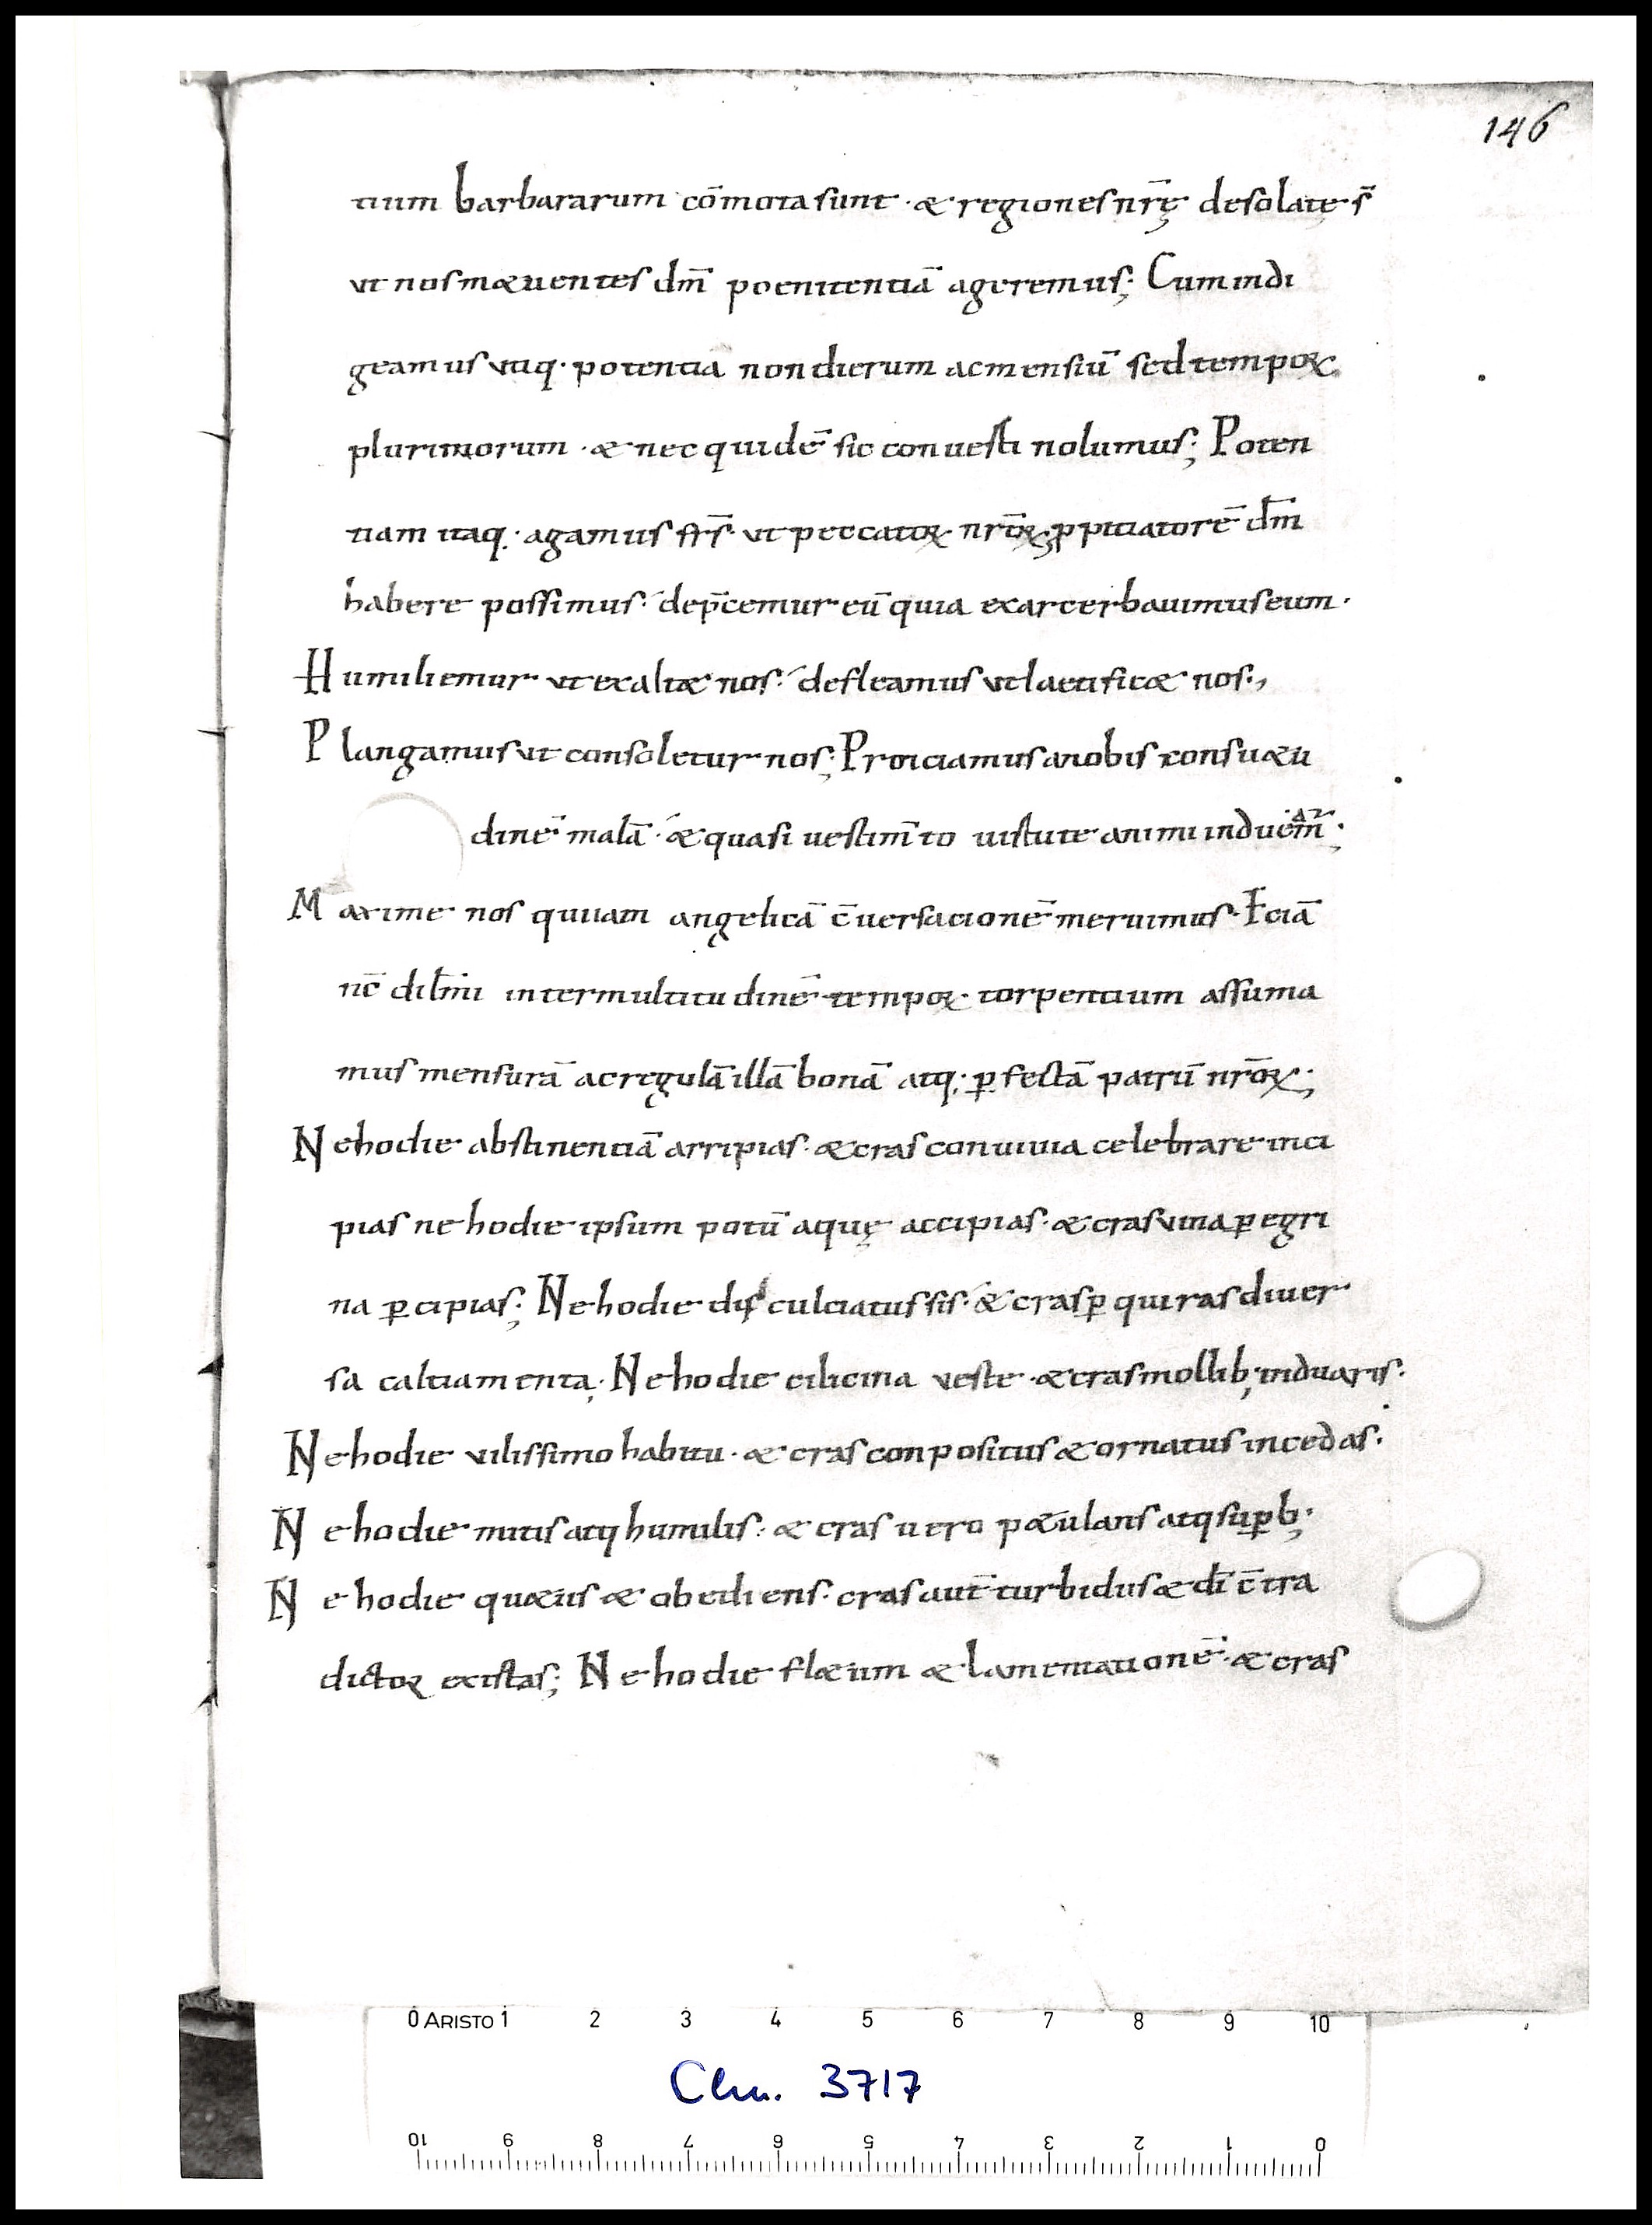 146
tium barbararum cōmota sunt · & regiones nr̄ę desolatę s̄
ut nos m&uentes dm̄ poenitentiā ageremus; Cum indi
geamus utiq· potentia non dierum ac mensiū sed tempoꝝ
plurimorum · & nec quidē sic conuesti nolumus; Poten
tiam itaq· agamus fr̄s · ut peccatoꝝ nr̄oꝝ ꝓpitiatorē dm̄
habere possimus · dep̄cemur eū quia exarcerbauimus eum ·
Humiliemur ut exalt& nos · defleamus ut laetific& nos·,
Plangamus ut consoletur nos; Proiciamus a nobis consu&u
dinē malā · & quasi uestim̄to uirtute animi induem̄ ;
Maxime nos qui iam angelicā c̄uersacionē meruimus · Eciā
nc̄ dil̄mi inter multitudinē tempoꝝ · torpentium assuma
mus mensurā ac regulā illā bonā atq; ꝑfectā patrū nr̄oꝝ;
Ne hodie abstinentiā arripias · & cras conuiuia celebrare inci
pias ne hodie ipsum potū aquę accipias · & cras uina ꝑegri
na ꝑcipias; Ne hodie disculciatus sis · & cras ꝑquiras diuer
sa caltiamenta; Ne hodie cilicina ueste · & cras mollib; induaris ·
Ne hodie uilissimo habitu · & cras conpositus & ornatus incedas ·
Ne hodie mitis atq humilis : & cras uero p&ulans atq suꝑb; ·
Ne hodie qu&us & obediens · cras aut̄ turbidus & dī c̄tra
dictoꝛ existas; Ne hodie fl&um & lamentationē · & cras
0 ARISTO 1 2 3 4 5 6 7 8 9 10
Clm. 3717
10 9 8 7 6 5 4 3 2 1 0